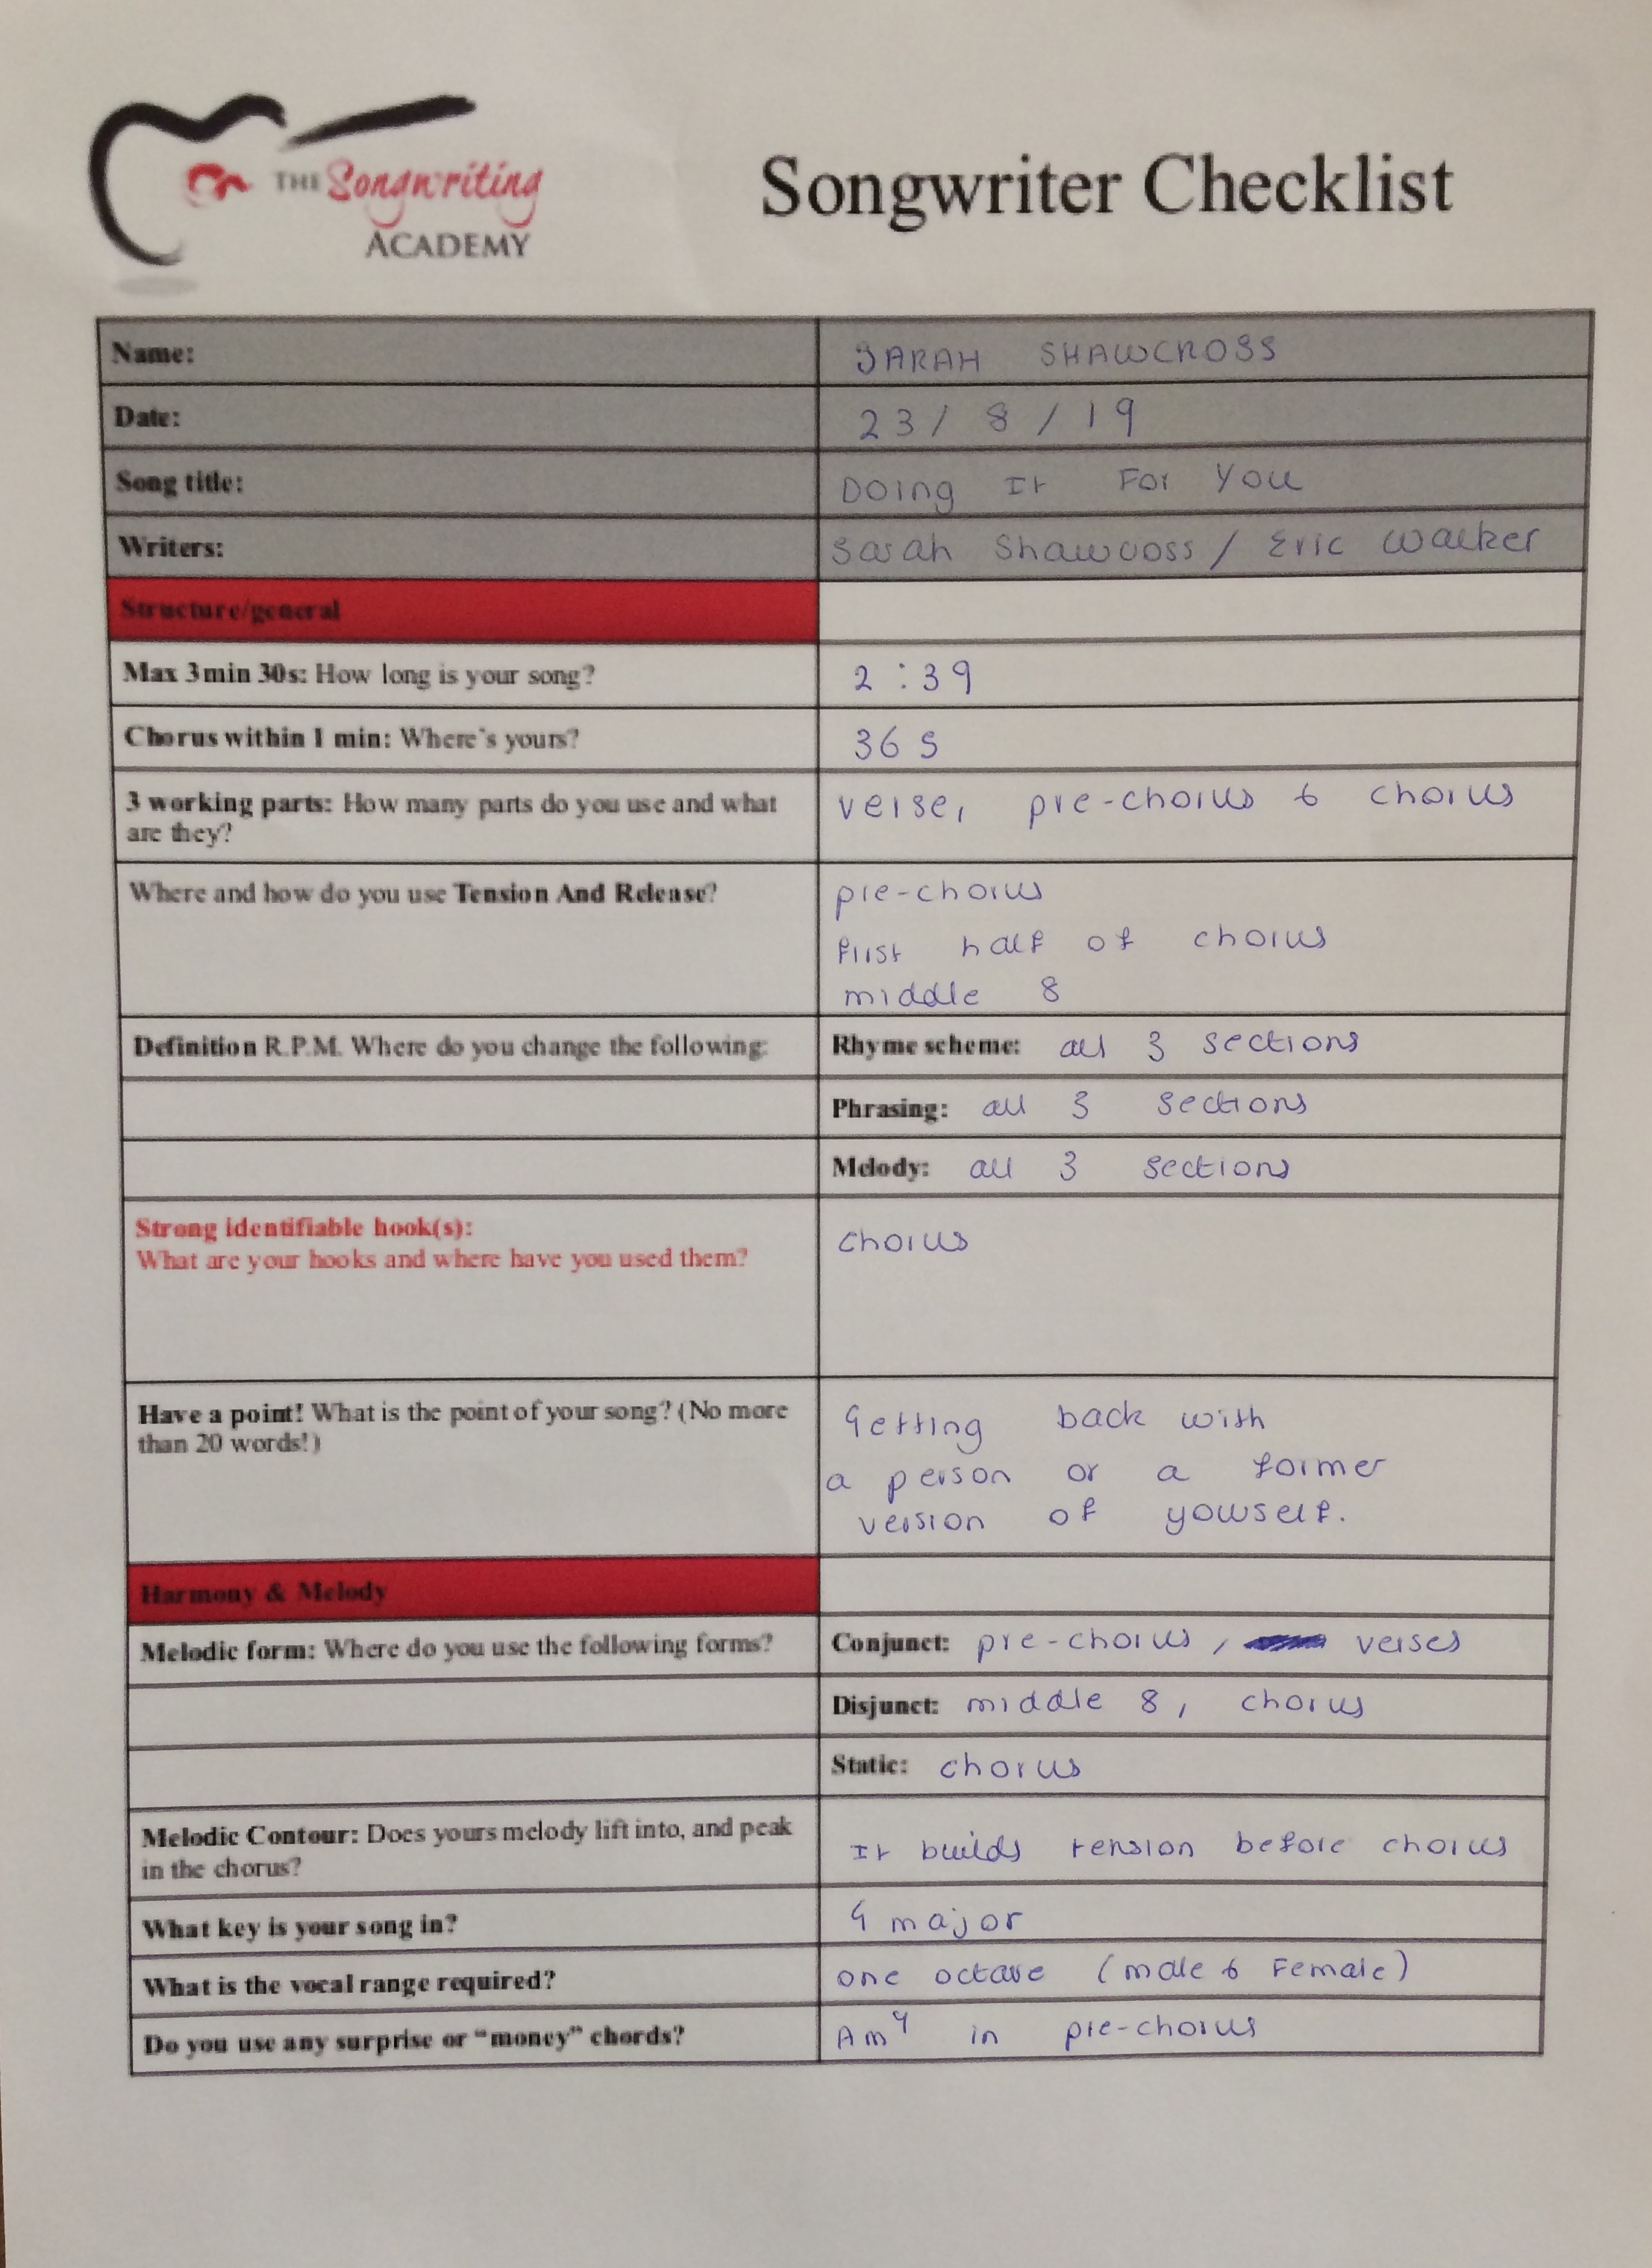 THE Songwriting
ACADEMY
Songwriter Checklist
Name: SARAH SHAWCROSS
Date: 23 / 8 / 19
Song title: Doing It For You
Writers: Sarah Shawcross / Eric Walker
Structure/general
Max 3min 30s: How long is your song? 2:39
Chorus within 1 min: Where's yours? 36 s
3 working parts: How many parts do you use and what
are they?
verse, pre-chorus & chorus
Where and how do you use Tension And Release?
pre-chorus
first half of chorus
middle 8
Definition R.P.M. Where do you change the following:
Rhyme scheme: all 3 sections
Phrasing: all 3 sections
Melody: all 3 sections
Strong identifiable hook(s):
What are your hooks and where have you used them?
chorus
Have a point! What is the point of your song? (No more
than 20 words!)
Getting back with
a person or a former
version of yourself.
Harmony & Melody
Melodic form: Where do you use the following forms?
Conjunct: pre-chorus, verses
Disjunct: middle 8, chorus
Static: chorus
Melodic Contour: Does yours melody lift into, and peak
in the chorus?
It builds tension before chorus
What key is your song in? G major
What is the vocal range required? one octave (male & Female)
Do you use any surprise or "money" chords? Am in pre-chorus